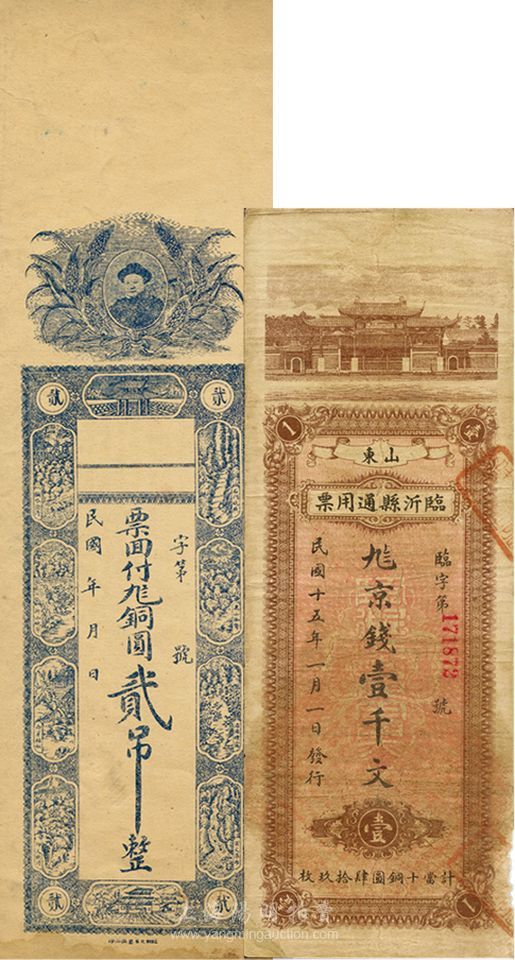 貳 貳
字第 號
票面付九銅圓貳吊整
民國 年 月 日
貳 貳
1
山東
臨沂縣通用票
臨字第171872號
九京錢壹千文
民國十五年一月一日發行
壹
計當十銅圓肆拾玖枚
www.yangmingauction.com